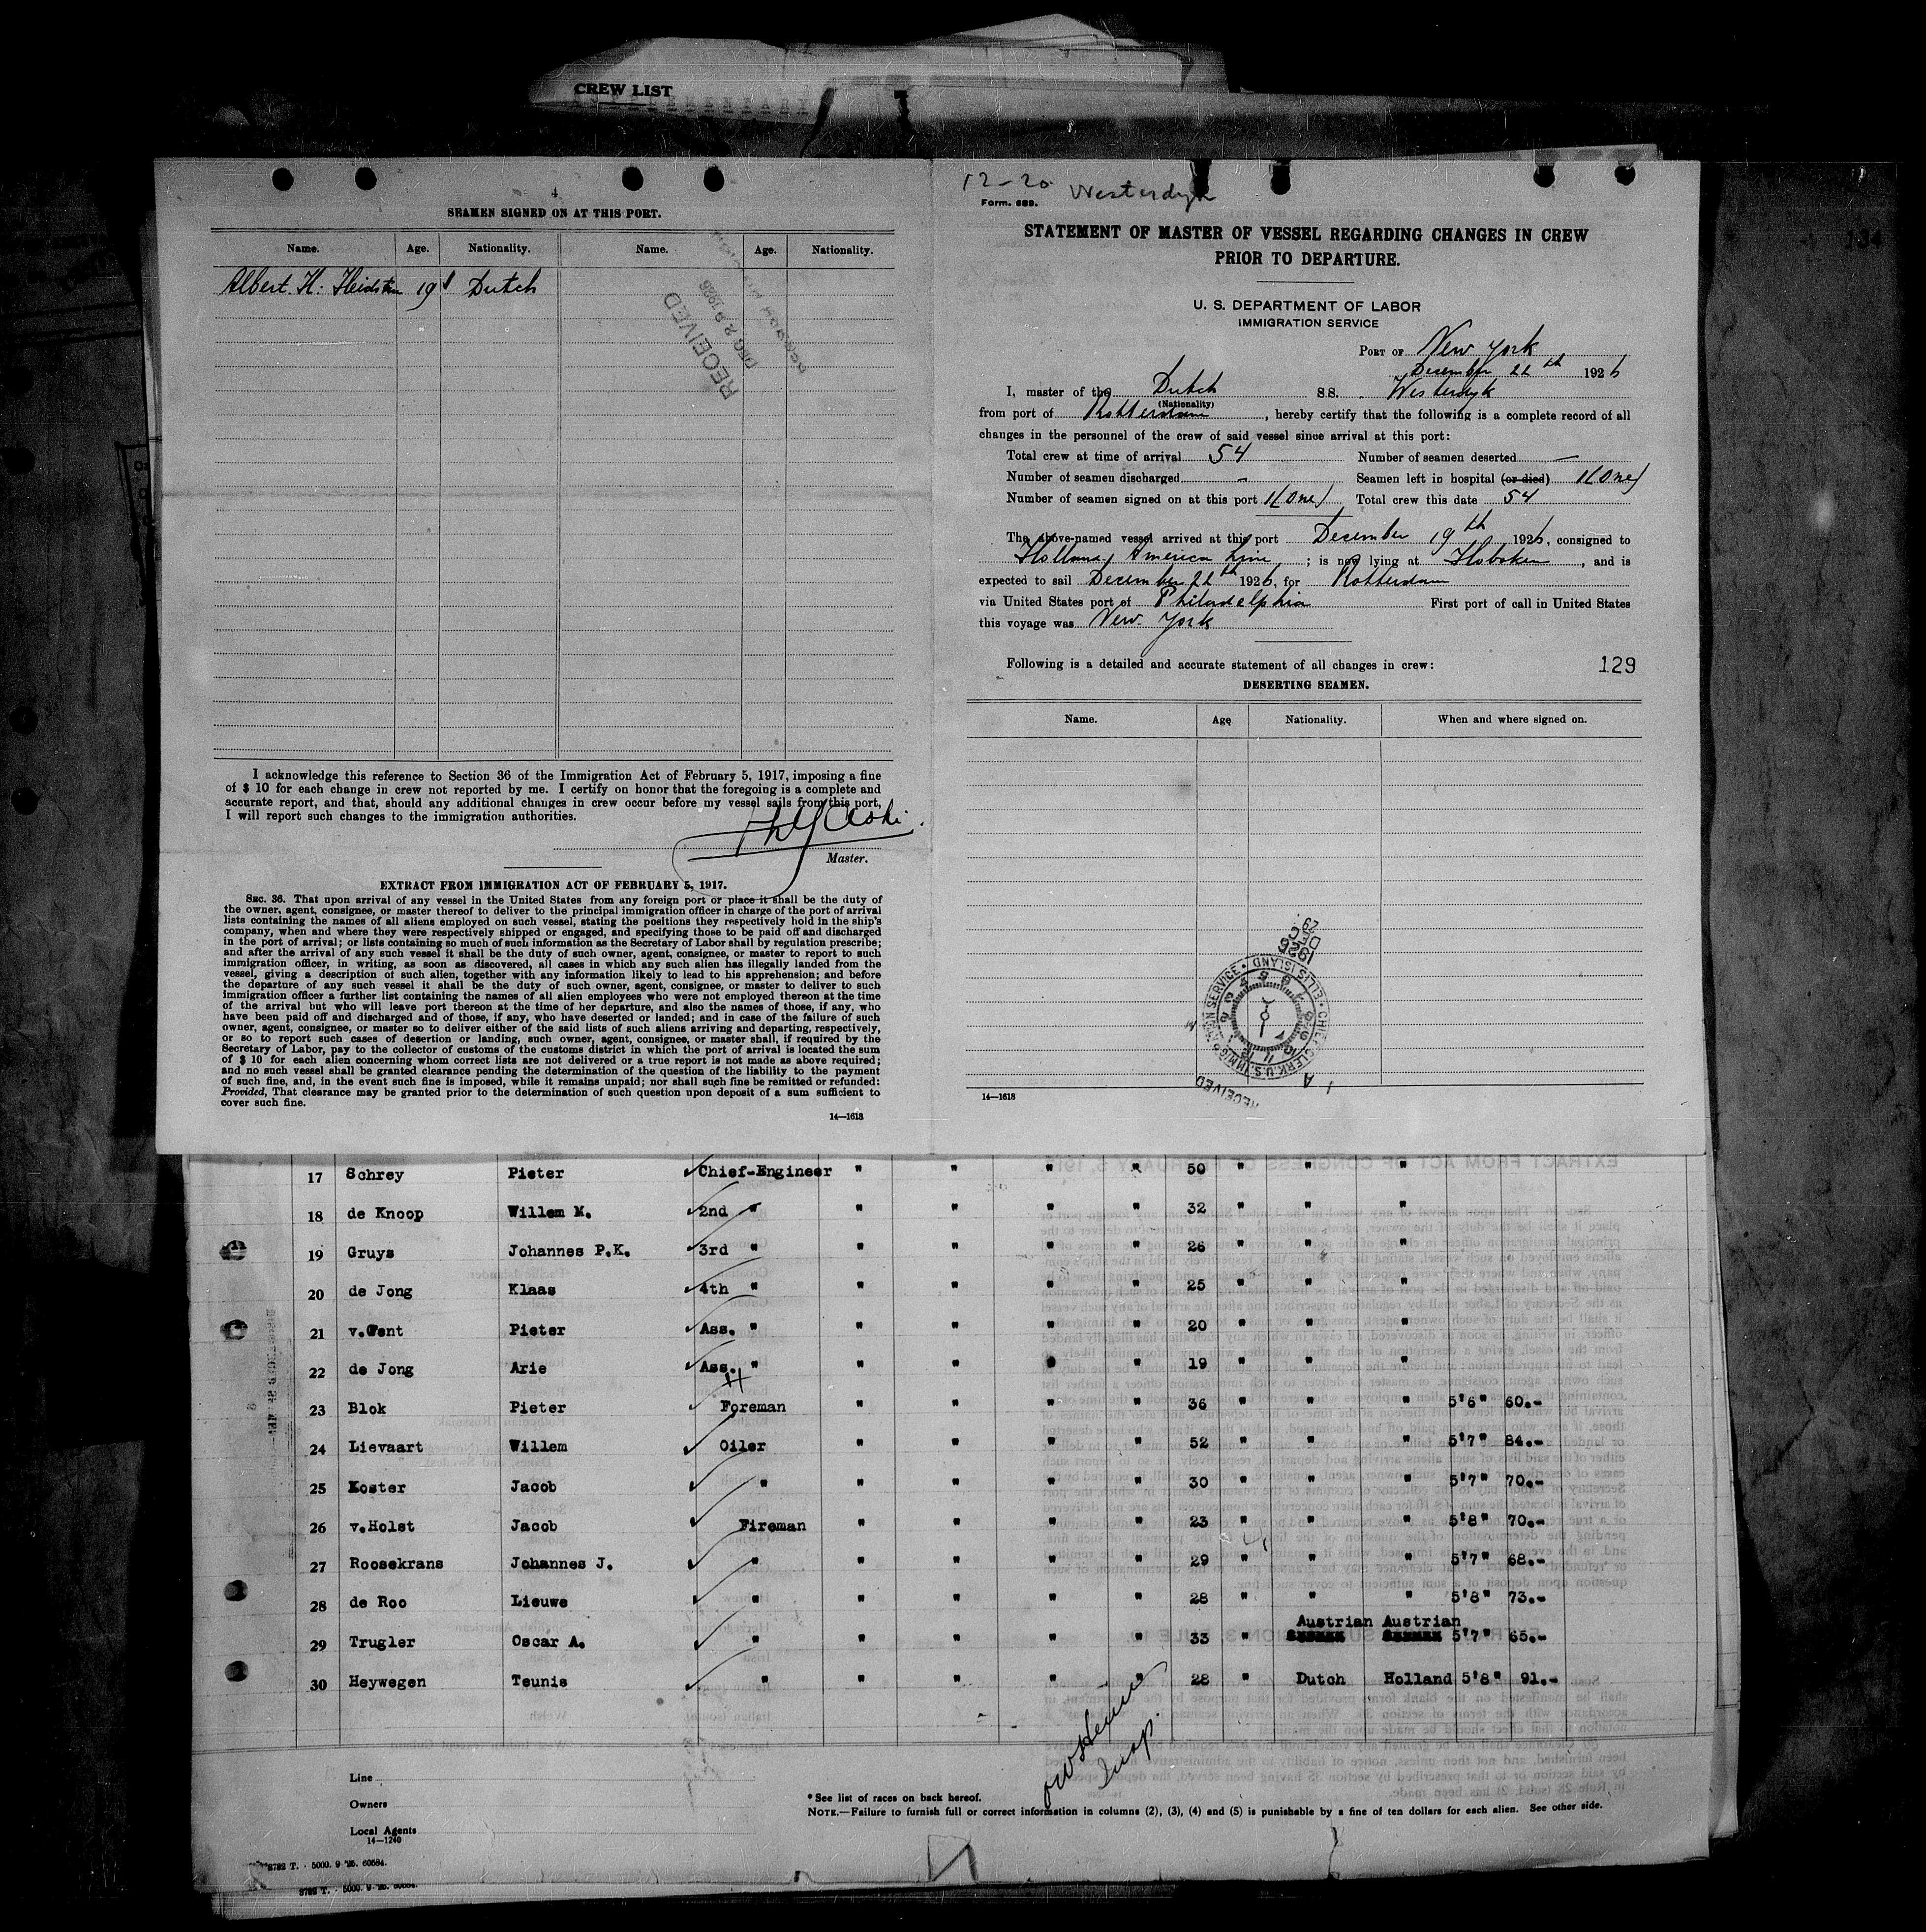 CREW LIST
4
SEAMEN SIGNED ON AT THIS PORT.
Name. Age. Nationality. Name. Age. Nationality.
Albert H. 19 Dutch
RECEIVED
DEC 29 1926
I acknowledge this reference to Section 36 of the Immigration Act of February 5, 1917, imposing a fine
of $ 10 for each change in crew not reported by me. I certify on honor that the foregoing is a complete and
accurate report, and that, should any additional changes in crew occur before my vessel sails from this port,
I will report such changes to the immigration authorities.
Master.
EXTRACT FROM IMMIGRATION ACT OF FEBRUARY 5, 1917.
SEC. 36. That upon arrival of any vessel in the United States from any foreign port or place it shall be the duty of
the owner, agent, consignee, or master thereof to deliver to the principal immigration officer in charge of the port of arrival
lists containing the names of all aliens employed on such vessel, stating the positions they respectively hold in the ship's
company, when and where they were respectively shipped or engaged, and specifying those to be paid off and discharged
in the port of arrival; or lists containing so much of such information as the Secretary of Labor shall by regulation prescribe;
and after the arrival of any such vessel it shall be the duty of such owner, agent, consignee, or master to report to such
immigration officer, in writing, as soon as discovered, all cases in which any such alien has illegally landed from the
vessel, giving a description of such alien, together with any information likely to lead to his apprehension; and before
the departure of any such vessel it shall be the duty of such owner, agent, consignee, or master to deliver to such
immigration officer a further list containing the names of all alien employees who were not employed thereon at the time
of the arrival but who will leave port thereon at the time of her departure, and also the names of those, if any, who
have been paid off and discharged and of those, if any, who have deserted or landed; and in case of the failure of such
owner, agent, consignee, or master so to deliver either of the said lists of such aliens arriving and departing, respectively,
or so to report such cases of desertion or landing, such owner, agent, consignee, or master shall, if required by the
Secretary of Labor, pay to the collector of customs of the customs district in which the port of arrival is located the sum
of $ 10 for each alien concerning whom correct lists are not delivered or a true report is not made as above required;
and no such vessel shall be granted clearance pending the determination of the question of the liability to the payment
of such fine, and, in the event such fine is imposed, while it remains unpaid; nor shall such fine be remitted or refunded:
Provided, That clearance may be granted prior to the determination of such question upon deposit of a sum sufficient to
cover such fine.
14—1618
12-20 Westerdyk
Form. 689.
STATEMENT OF MASTER OF VESSEL REGARDING CHANGES IN CREW
PRIOR TO DEPARTURE.
U. S. DEPARTMENT OF LABOR
IMMIGRATION SERVICE
PORT OF New York
December 22th 1926
I, master of the Dutch S.S. Westerdyk
(Nationality)
from port of Rotterdam, hereby certify that the following is a complete record of all
changes in the personnel of the crew of said vessel since arrival at this port:
Total crew at time of arrival 54 Number of seamen deserted —
Number of seamen discharged - Seamen left in hospital (or died) 1 (One)
Number of seamen signed on at this port 1 (One) Total crew this date 54
The above-named vessel arrived at this port December 19th 1926, consigned to
Holland America Line; is now lying at Hoboken, and is
expected to sail December 22th 1926, for Rotterdam
via United States port of Philadelphia First port of call in United States
this voyage was New York
Following is a detailed and accurate statement of all changes in crew: 129
DESERTING SEAMEN.
Name. Age Nationality. When and where signed on.
DEC 29
1926
CHIEF CLERK U.S. IMMIGRATION SERVICE • ELLIS ISLAND
RECEIVED
14—1618
134
17 Schrey Pieter Chief-Engineer " " " " 50 " " "
18 de Knoop Willem M. 2nd " " " " " 32 " " "
19 Gruys Johannes P.K. 3rd " " " " " 26 " " "
20 de Jong Klaas 4th " " " " " 25 " " "
21 v.Gent Pieter Ass. " " " " " 20 " " "
22 de Jong Arie Ass. " " " " " 19 " " "
23 Blok Pieter Foreman " " " " 36 " " " 5'6" 60.-
24 Lievaart Willem Oiler " " " " 52 " " " 5'7" 84.-
25 Koster Jacob " " " " " 30 " " " 5'7" 70.-
26 v.Holst Jacob Fireman " " " " 23 " " " 5'8" 70.-
27 Roosekrans Johannes J. " " " " " 29 " " " 5'7" 68.-
28 de Roo Lieuwe " " " " " 28 " " " 5'8" 73.-
Austrian Austrian
29 Trugler Oscar A. " " " " " 33 " 5'7" 65.-
30 Heywegen Teunis " " " " " 28 " Dutch Holland 5'8" 91.-
Insp.
Line
Owners
Local Agents
14—1240
* See list of races on back hereof.
NOTE.—Failure to furnish full or correct information in columns (2), (3), (4) and (5) is punishable by a fine of ten dollars for each alien. See other side.
8782 T. - 5000. 9 '25. 60584.